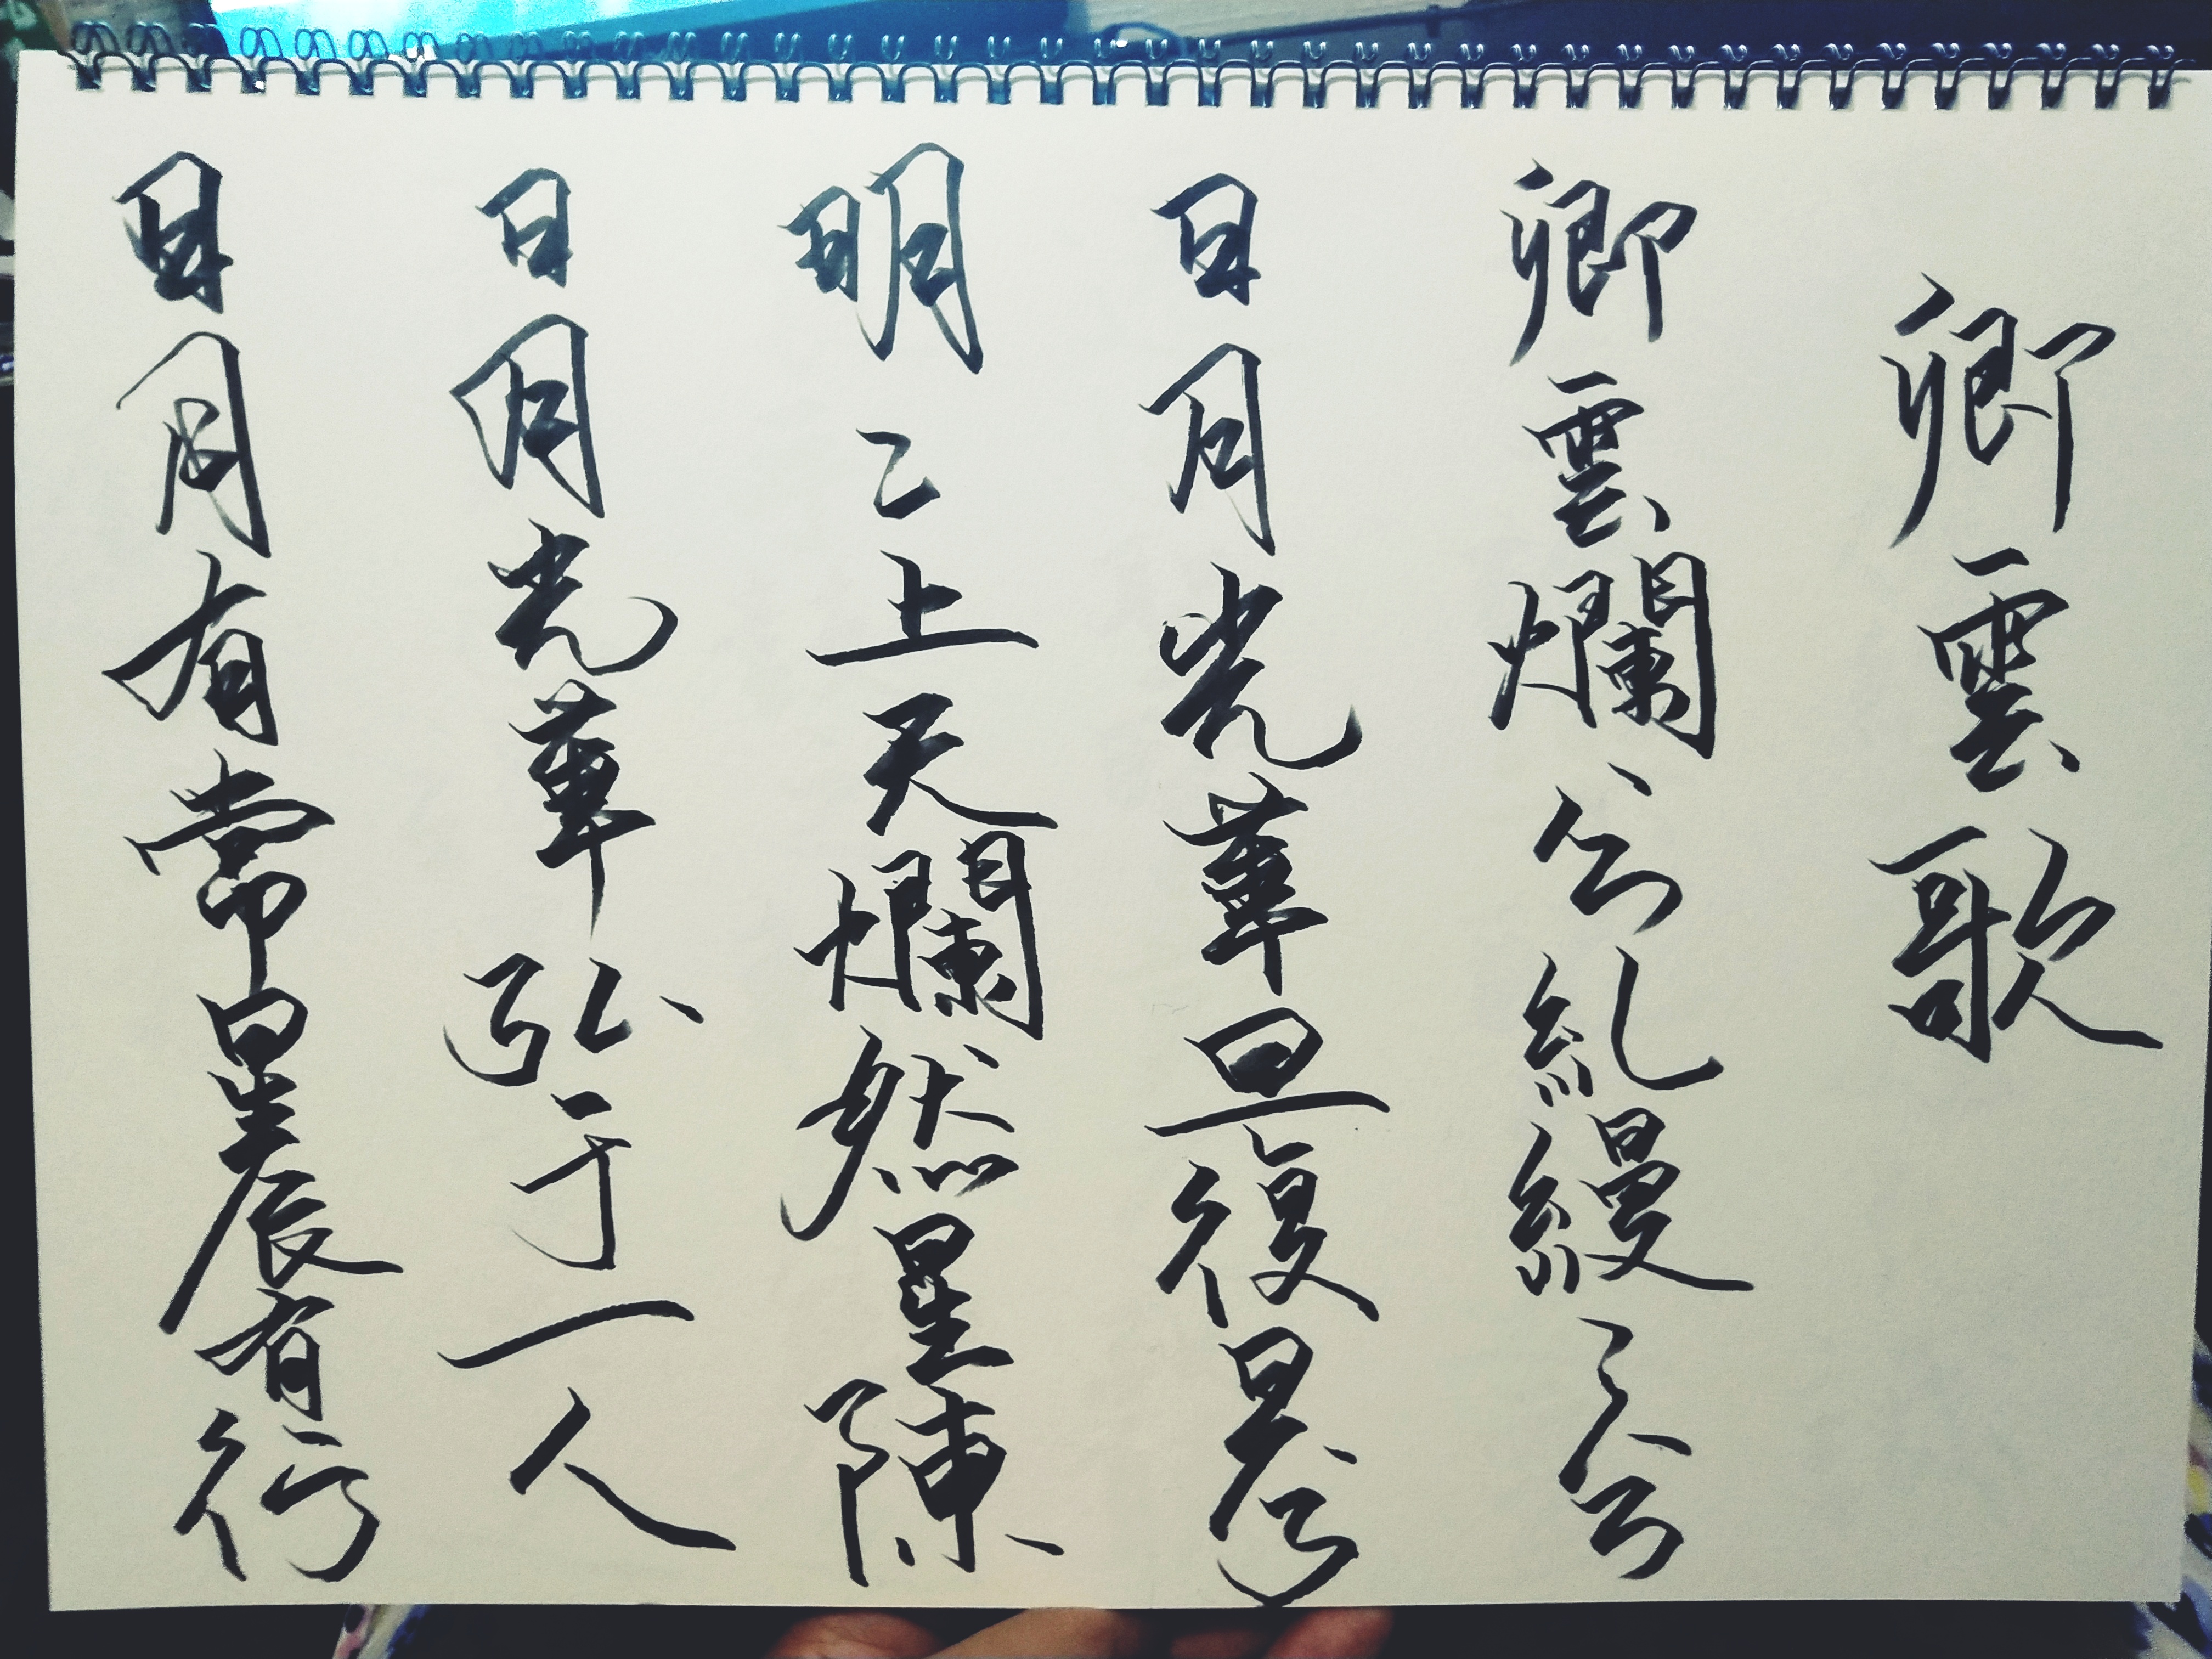 卿雲歌
卿雲爛兮糺縵〻兮
日月光華旦復旦兮
明〻上天爛然星陳
日月光華弘于一人
日月有常星辰有行